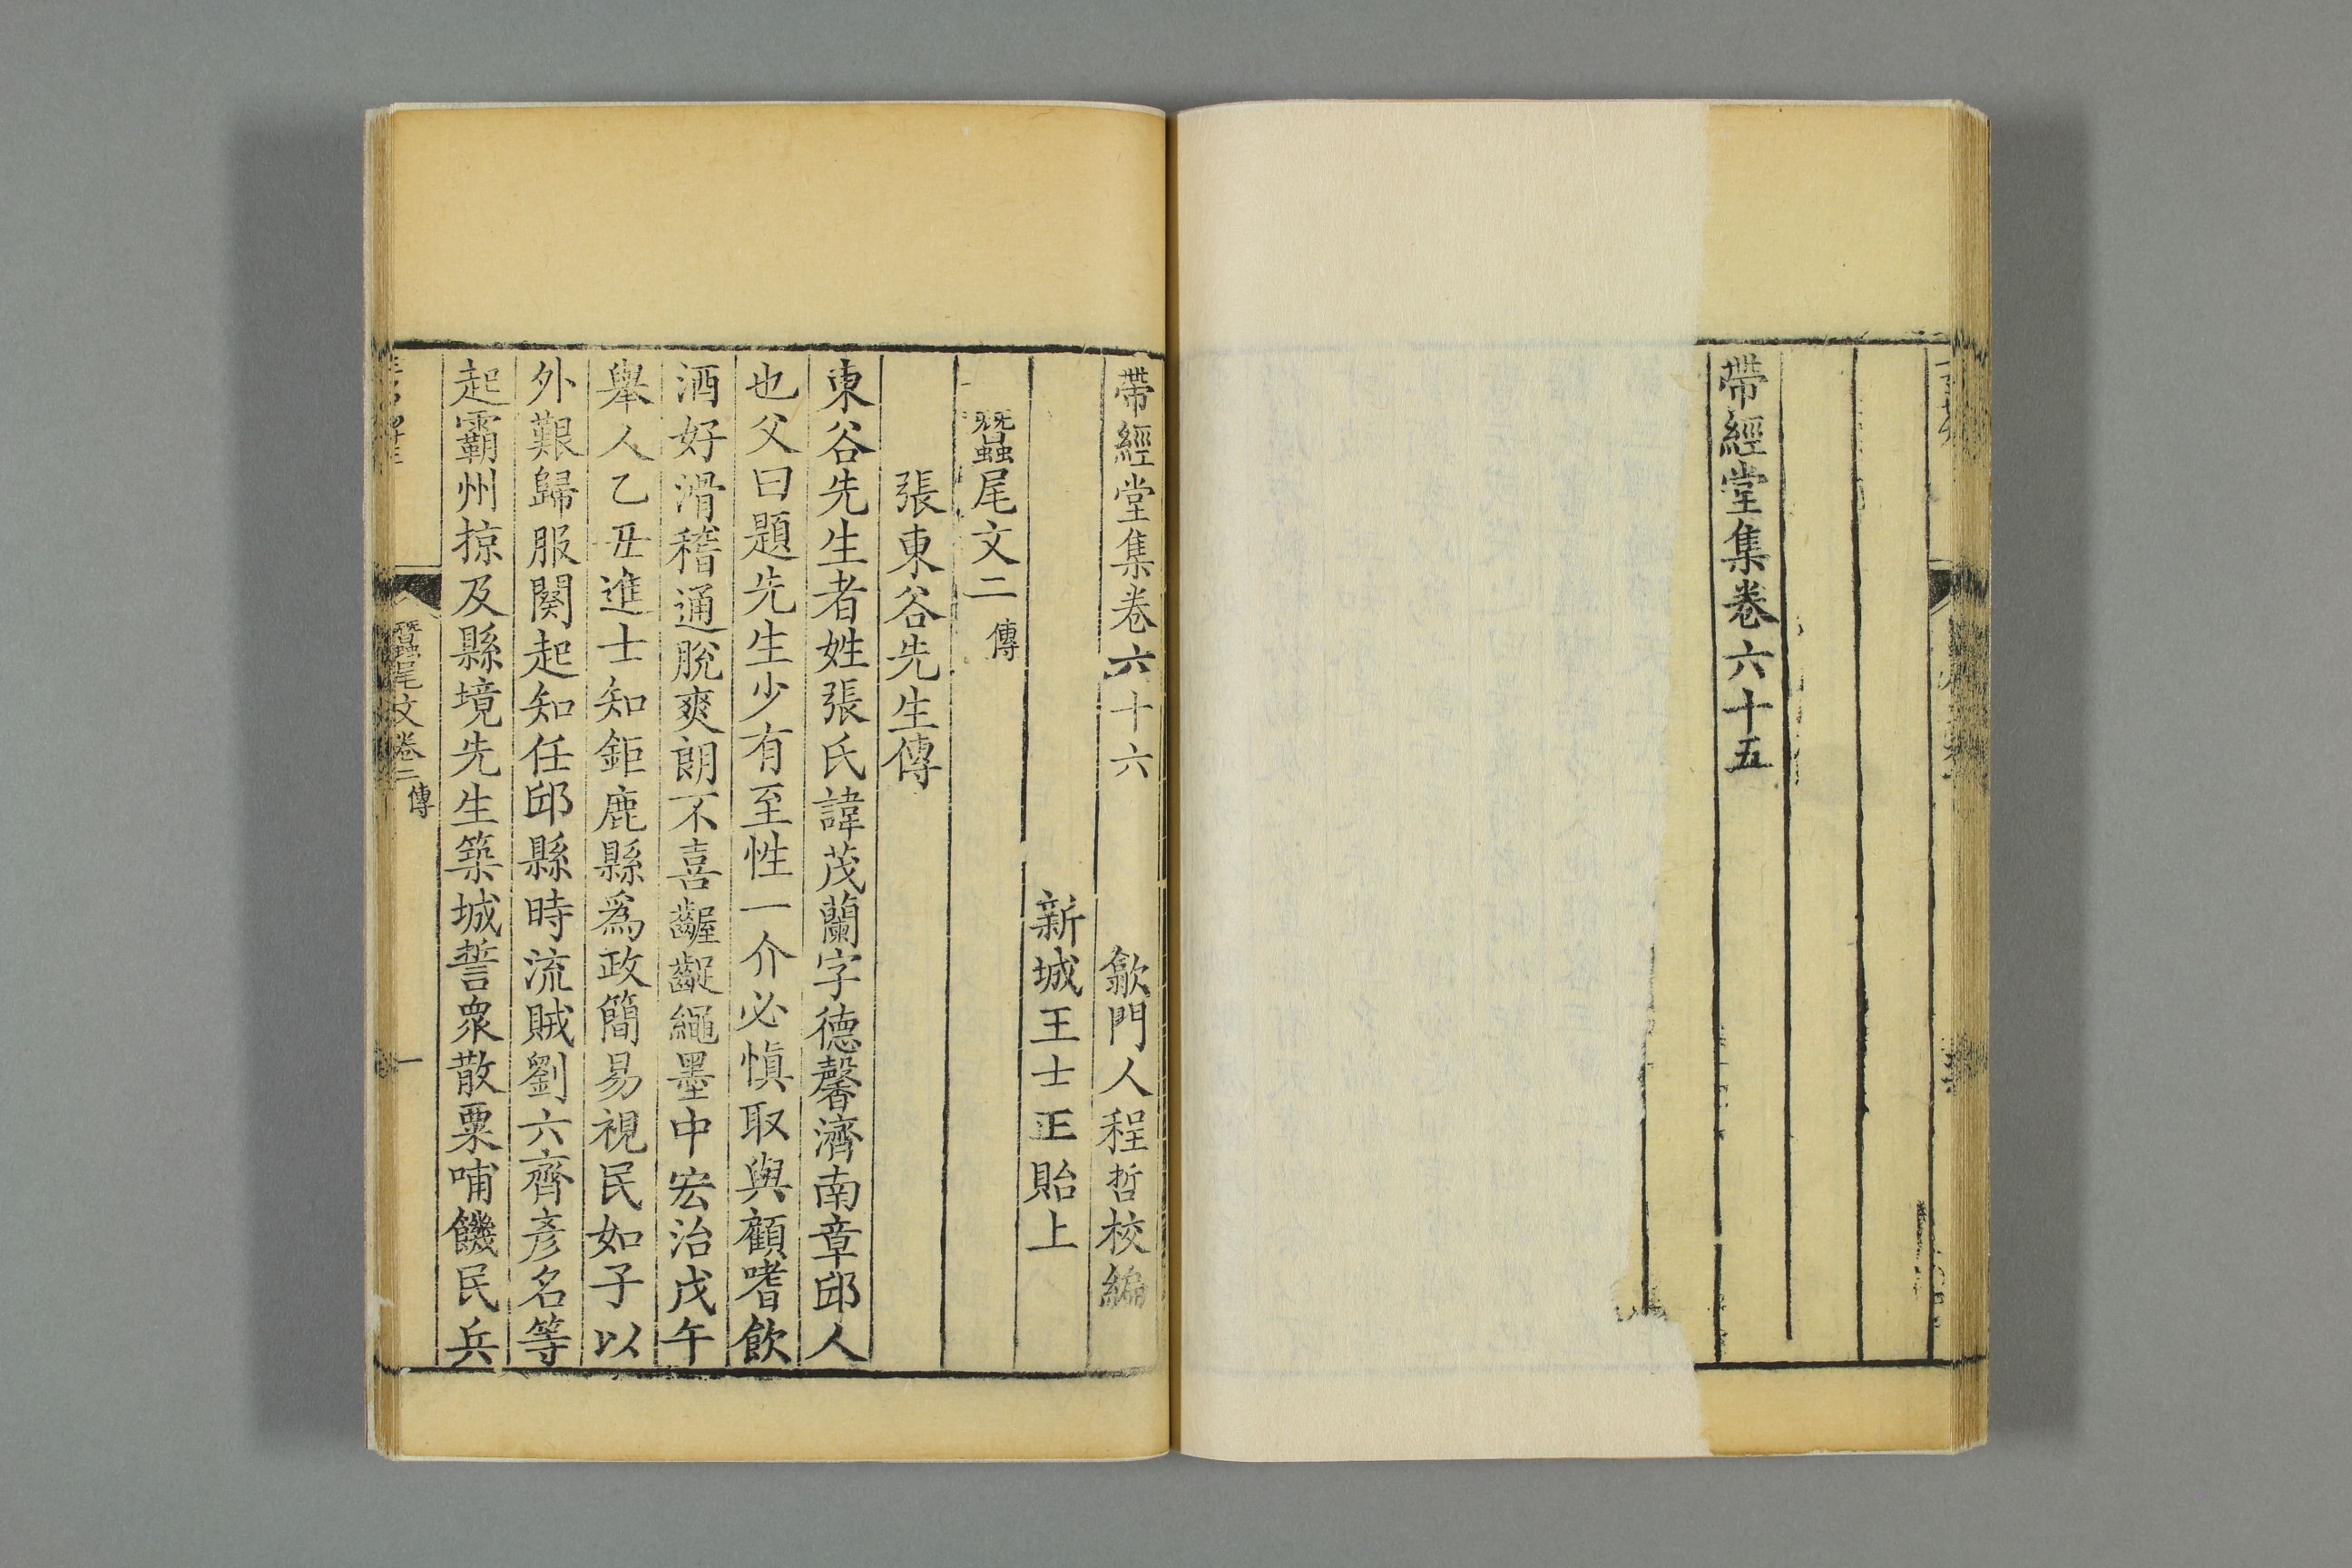 帶經堂集卷六十五
帶經堂集卷六十六　歙門人程哲校編
新城王士正貽上
蠶尾文二　傳
張東谷先生傳
東谷先生者姓張氏諱茂蘭字德馨濟南章邱人
也父曰題先生少有至性一介必慎取與顧嗜飲
酒好滑稽通脫爽朗不喜齷齪繩墨中宏治戊午
舉人乙丑進士知鉅鹿縣爲政簡易視民如子以
外艱歸服闋起知任邱縣時流賊劉六齊彥名等
起霸州掠及縣境先生築城誓衆散粟哺饑民兵
蠶尾文卷二　傳　一